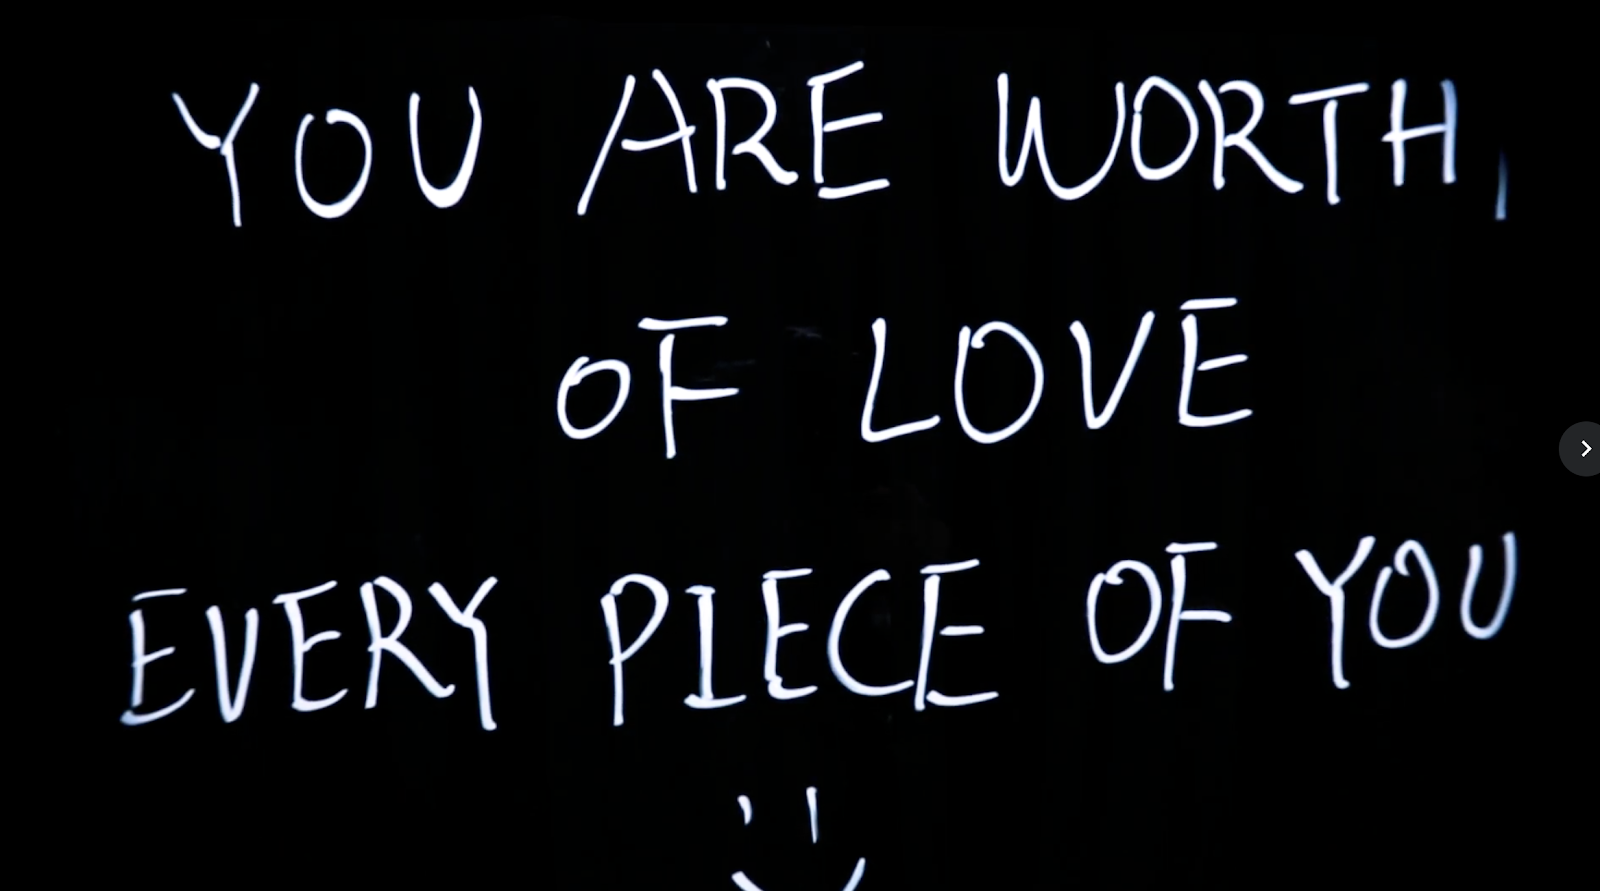 YOU ARE WORTH,
OF LOVE
EVERY PIECE OF YOU